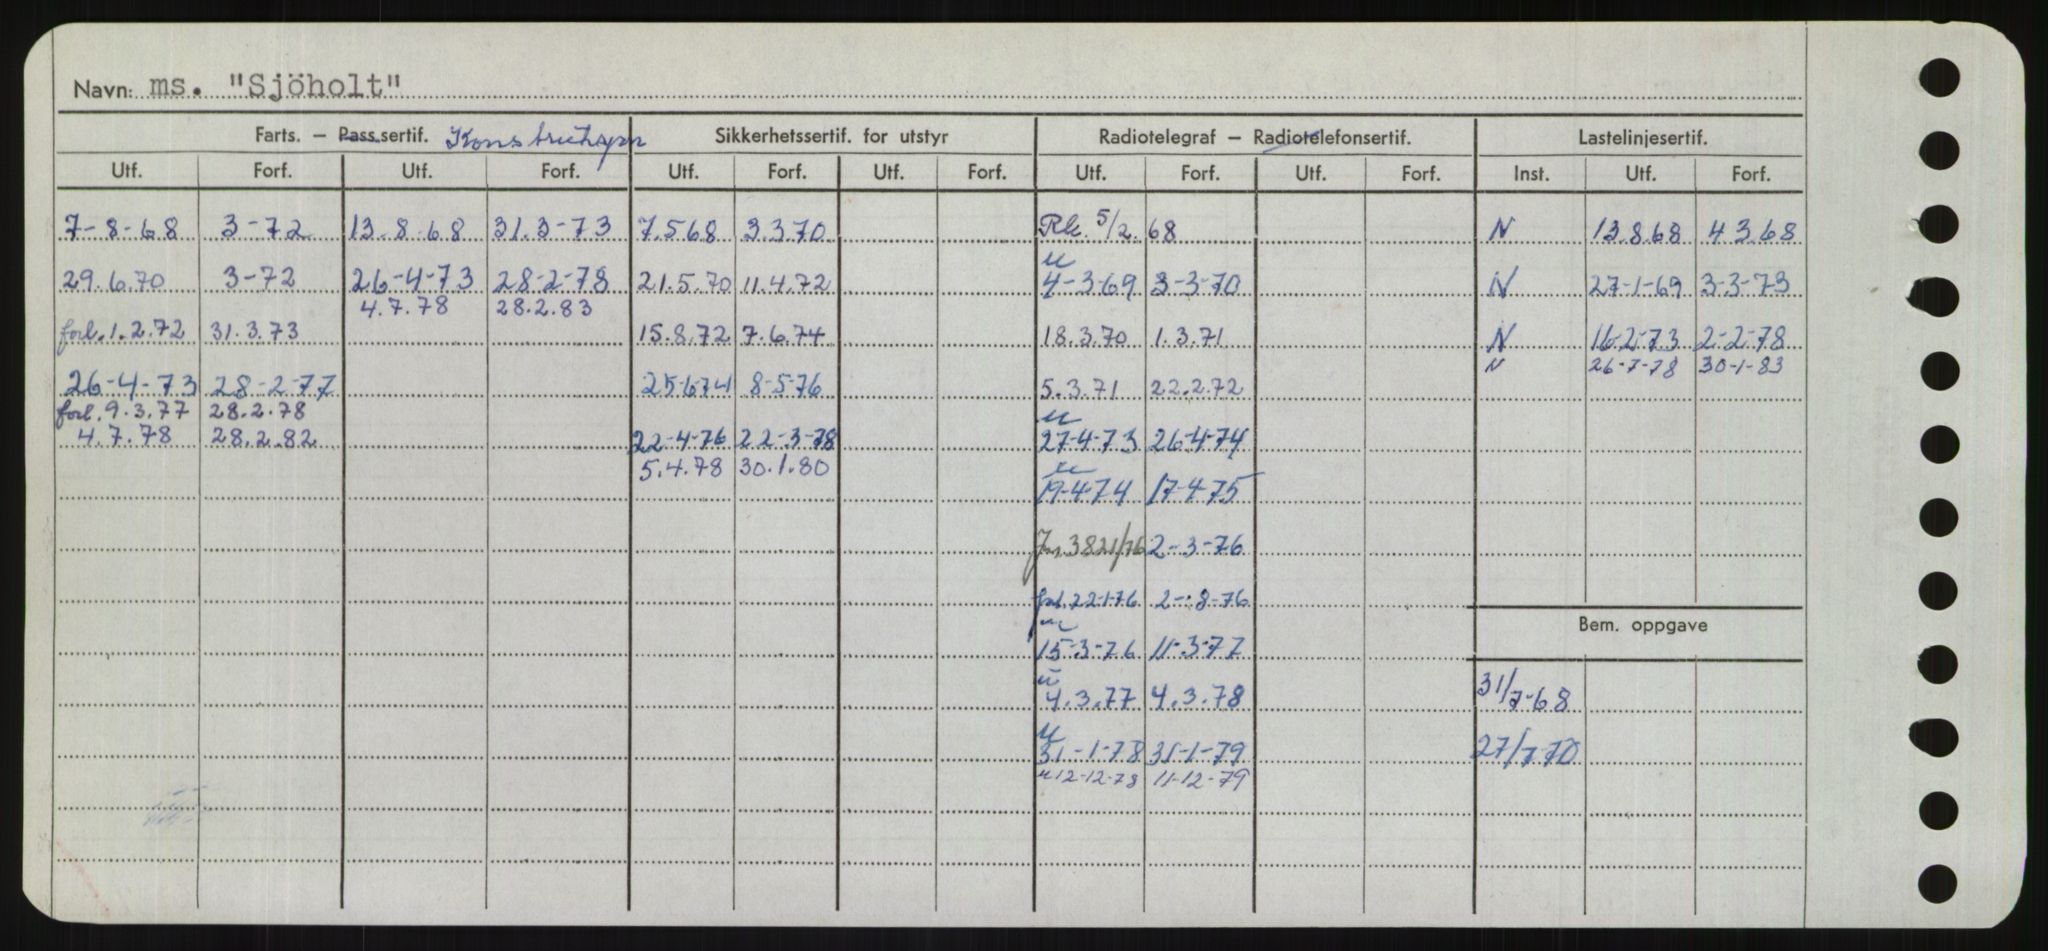 Navn: ms. "Sjöholt"
Farts. – Pass.sertif. Konstruksjon Sikkerhetssertif. for utstyr Radiotelegraf – Radiotelefonsertif. Lastelinjesertif.
Utf. Forf. Utf. Forf. Utf. Forf. Utf. Forf. Utf. Forf. Utf. Forf. Inst. Utf. Forf.
7-8-68 3-72 13.8.68 31.3-73 7.568 3.370 Rk. 5/2.68 N 13.8.68 4368
u
29.6.70 3-72 26-4-73 28-2-78 21.5.70 11.4.72 4-369 3-3-70 N 27-1-69 3-3-73
4.7.78 28.2.83
forl. 1.2.72 31.3.73 15.8.72 7.6.74 18.3.70 1.3.71 N 16-2-73 2-2-78
N 26-7-78 30-1-83
26-4-73 28-2-77 25-674 8-5-76 5.3.71 22.2.72
forl. 9.3.77 28.2.78 u
4.7.78 28.2.82 22-4-76 22-3-78 27-4-73 26-4-74
5.4.78 30.1.80 u
19-4-74 17-4-75
Jnr. 3821/76 2-3-76
forl. 22-1-76 2-8-76
Bem. oppgave
u
15-3-76 11-3-77
u
4.3.77 4.3.78 31/7-68
u
31-1-78 31-1-79 27/7-70
u 12-12-78 11-12-79